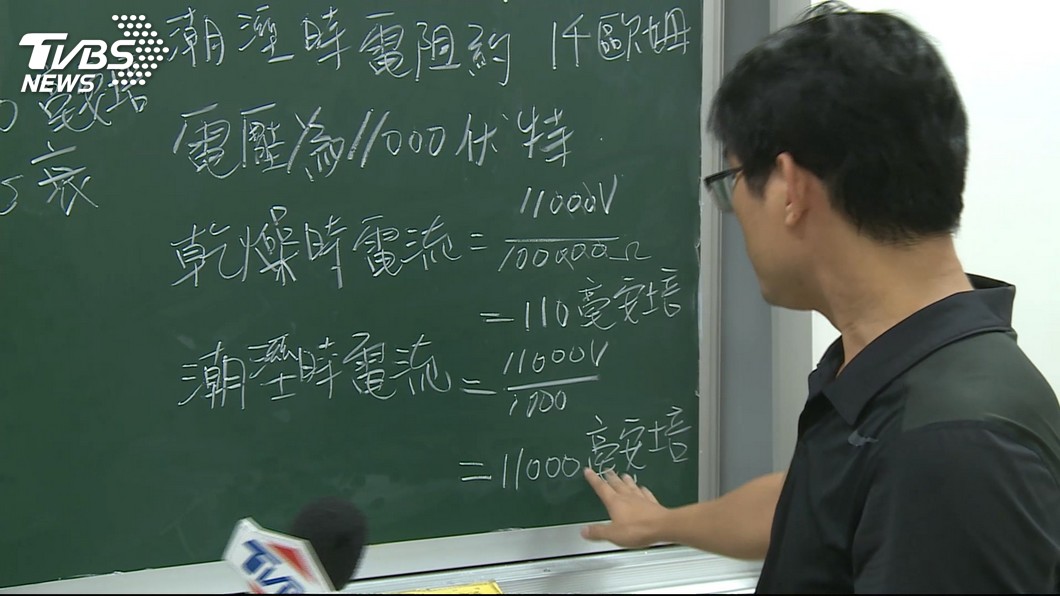 TVBS
NEWS
潮溼時電阻約 1千歐姆
電壓為11000伏特
衰
乾燥時電流 = 11000V / 100000Ω
= 110毫安培
潮溼時電流 = 11000V / 1000
= 11000毫安培
TVBS